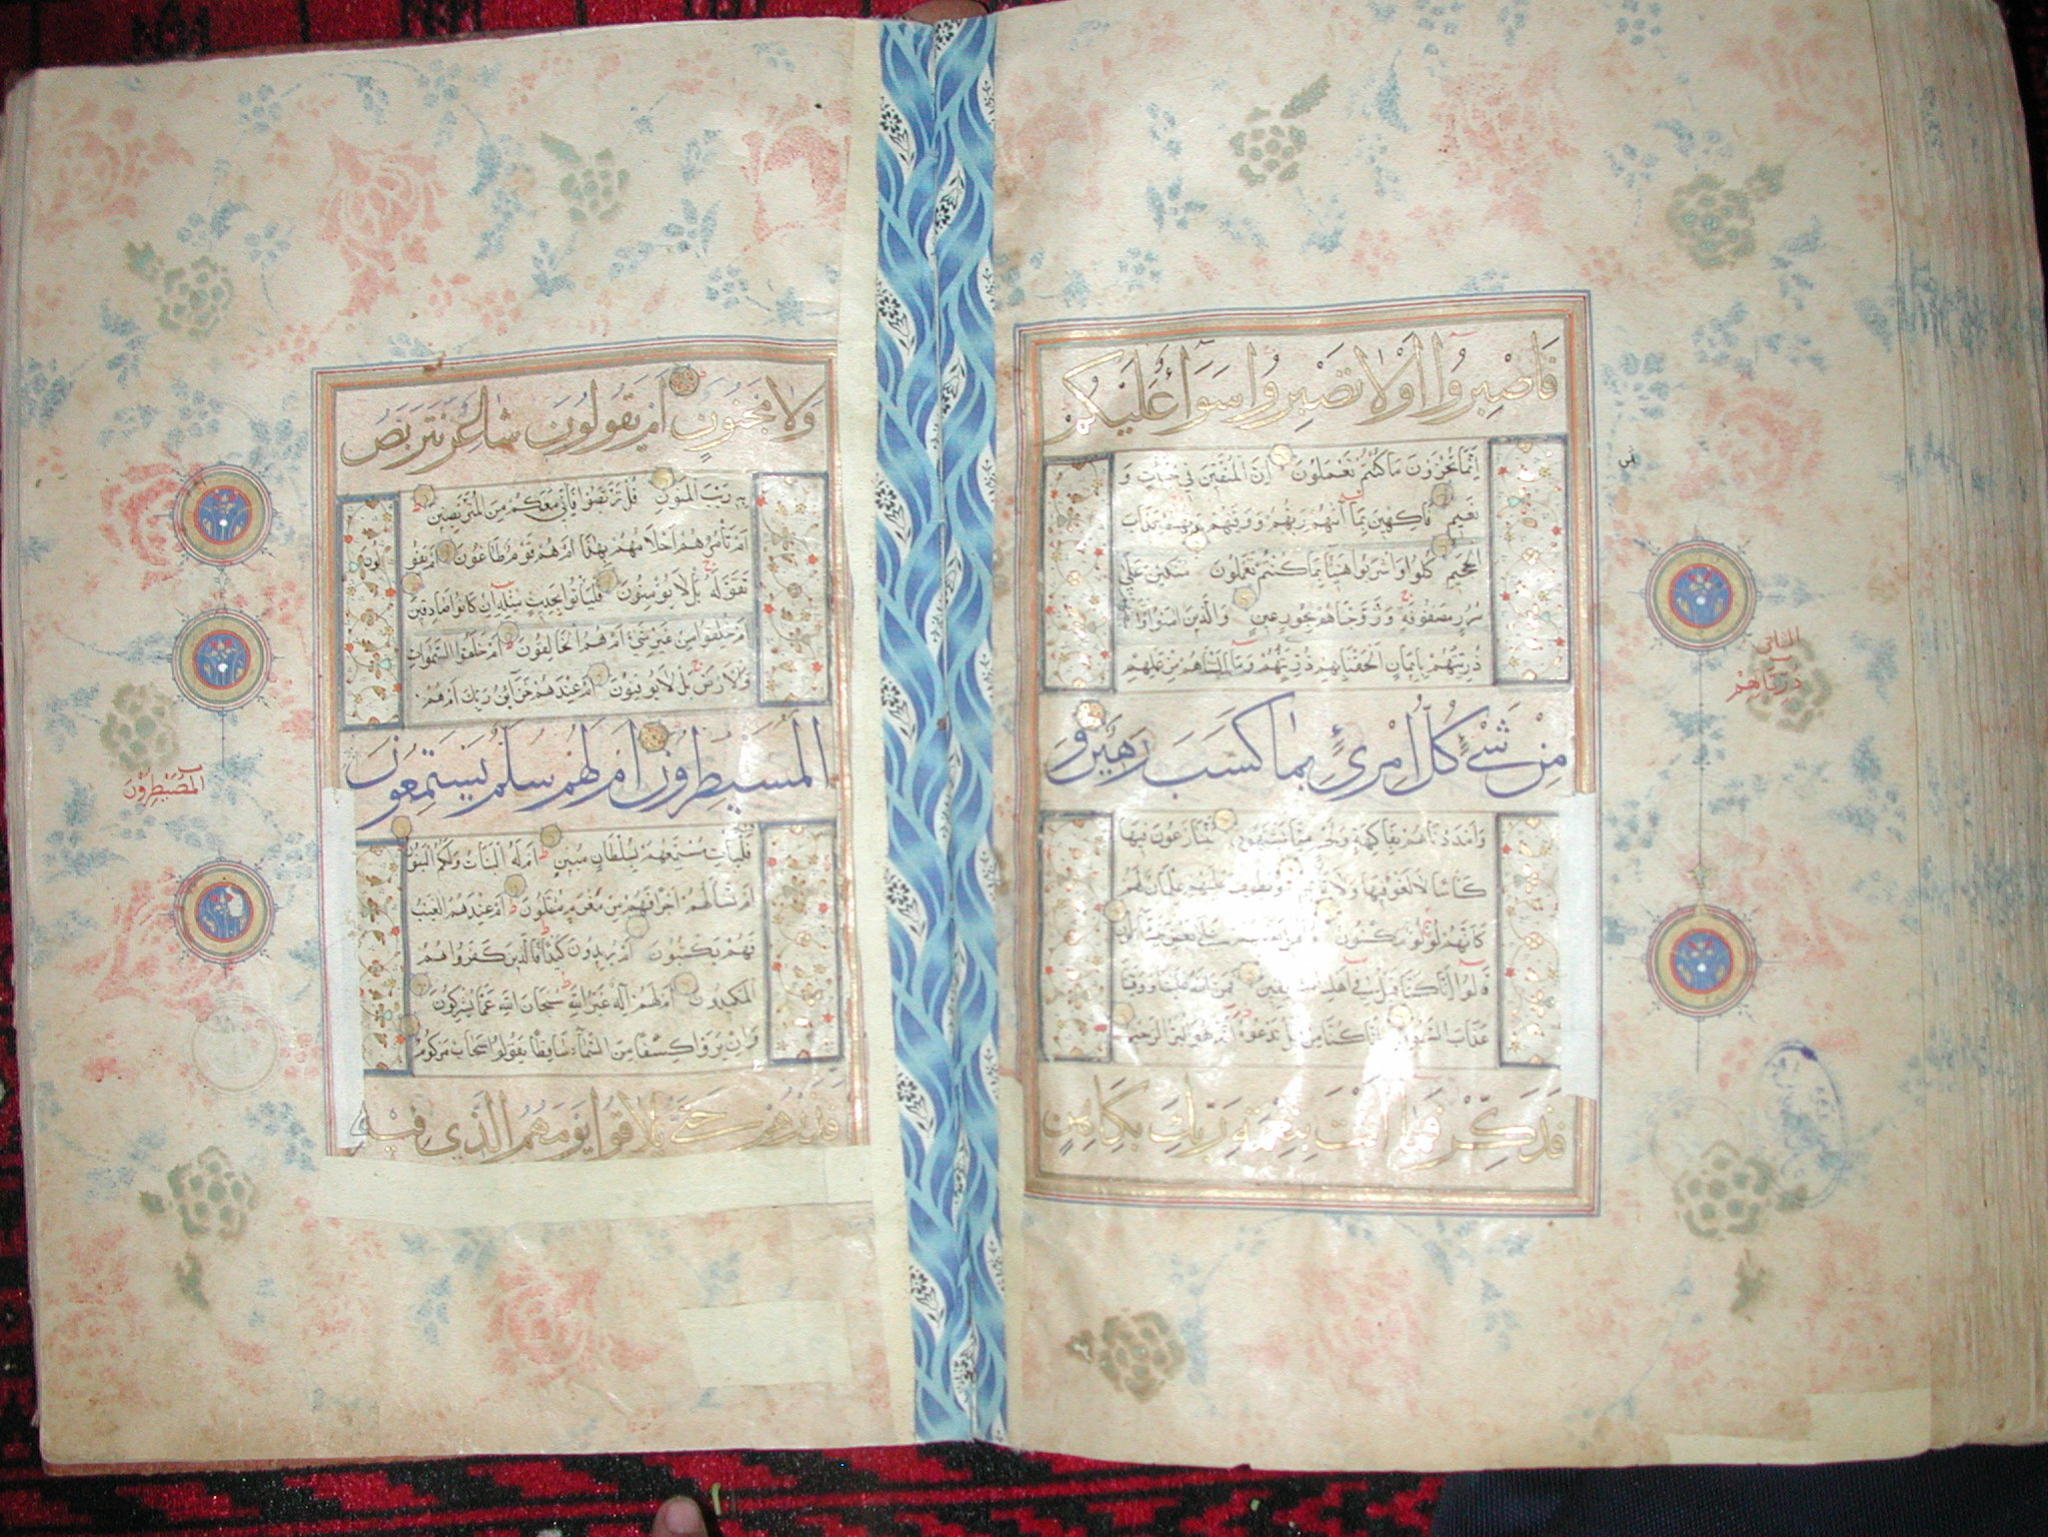 فَاصْبِرُوا أَوْلَا تَصْبِرُوا سَوَاءٌ عَلَيْكُمْ
اِنَّمَا تُجْزَوْنَ مَا كُنْتُمْ تَعْمَلُونَ اِنَّ الْمُتَّقِينَ فِي جَنَّاتٍ وَ
نَعِيمٍ فَاكِهِينَ بِمَا آتٰيهُمْ رَبُّهُمْ وَوَقٰيهُمْ رَبُّهُمْ عَذَابَ
الْجَحِيمِ كُلُوا وَاشْرَبُوا هَنِيئًا بِمَا كُنْتُمْ تَعْمَلُونَ مُتَّكِئِينَ عَلَى
سُرُرٍ مَصْفُوفَةٍ وَزَوَّجْنَاهُمْ بِحُورٍ عِينٍ وَالَّذِينَ اٰمَنُوا
ذُرِّيَّتُهُمْ بِاِيمَانٍ اَلْحَقْنَا بِهِمْ ذُرِّيَّتَهُمْ وَمَا اَلَتْنَاهُمْ مِنْ عَمَلِهِمْ
مِنْ شَيْءٍ كُلُّ امْرِئٍ بِمَا كَسَبَ رَهِينٌ وَ
وَاَمْدَدْنَاهُمْ بِفَاكِهَةٍ وَلَحْمٍ مِمَّا يَشْتَهُونَ يَتَنَازَعُونَ فِيهَا
كَاْسًا لَا لَغْوٌ فِيهَا وَلَا وَيَطُوفُ عَلَيْهِمْ غِلْمَانٌ لَهُمْ
كَاَنَّهُمْ لُؤْلُؤٌ مَكْنُونٌ عَلَى بَعْضٍ
قَالُوا اِنَّا كُنَّا قَبْلُ فِي اَهْلِنَا مُشْفِقِينَ فَمَنَّ اللّٰهُ عَلَيْنَا وَوَقٰينَا
عَذَابَ السَّمُومِ اِنَّا كُنَّا مِنْ قَبْلُ نَدْعُوهُ اِنَّهُ هُوَ الْبَرُّ الرَّحِيمُ
فَذَكِّرْ فَمَا اَنْتَ بِنِعْمَةِ رَبِّكَ بِكَاهِنٍ
الثانى
ذُرِّيَّاتِهِمْ
وَلَا مَجْنُونٍ اَمْ يَقُولُونَ شَاعِرٌ نَتَرَبَّصُ
بِهِ رَيْبَ الْمَنُونِ قُلْ تَرَبَّصُوا فَاِنِّي مَعَكُمْ مِنَ الْمُتَرَبِّصِينَ
اَمْ تَاْمُرُهُمْ اَحْلَامُهُمْ بِهٰذَا اَمْ هُمْ قَوْمٌ طَاغُونَ اَمْ يَقُو
لون
تَقَوَّلَهُ بَلْ لَا يُؤْمِنُونَ فَلْيَاْتُوا بِحَدِيثٍ مِثْلِهِ اِنْ كَانُوا صَادِقِينَ
اَمْ خُلِقُوا مِنْ غَيْرِ شَيْءٍ اَمْ هُمُ الْخَالِقُونَ اَمْ خَلَقُوا السَّمٰوَاتِ
وَالْاَرْضَ بَلْ لَا يُوقِنُونَ اَمْ عِنْدَهُمْ خَزَائِنُ رَبِّكَ اَمْ هُمُ
الْمُسَيْطِرُونَ اَمْ لَهُمْ سُلَّمٌ يَسْتَمِعُونَ
فَلْيَاْتِ مُسْتَمِعُهُمْ بِسُلْطَانٍ مُبِينٍ اَمْ لَهُ الْبَنَاتُ وَلَكُمُ الْبَنُونَ
اَمْ تَسْاَلُهُمْ اَجْرًا فَهُمْ مِنْ مَغْرَمٍ مُثْقَلُونَ اَمْ عِنْدَهُمُ الْغَيْبُ
فَهُمْ يَكْتُبُونَ اَمْ يُرِيدُونَ كَيْدًا فَالَّذِينَ كَفَرُوا هُمُ
الْمَكِيدُونَ اَمْ لَهُمْ اِلٰهٌ غَيْرُ اللّٰهِ سُبْحَانَ اللّٰهِ عَمَّا يُشْرِكُونَ
وَاِنْ يَرَوْا كِسْفًا مِنَ السَّمَاءِ سَاقِطًا يَقُولُوا سَحَابٌ مَرْكُومٌ
فَذَرْهُمْ حَتّٰى يُلَاقُوا يَوْمَهُمُ الَّذِي فِيهِ
الْمُصَيْطِرُونَ